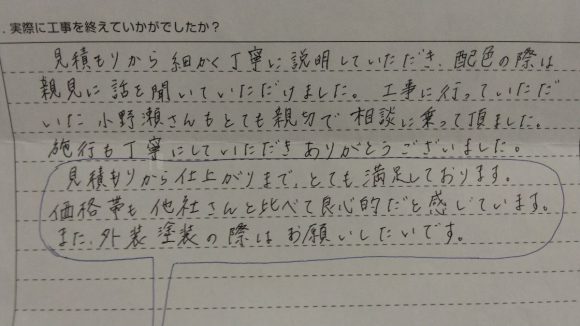 .実際に工事を終えていかがでしたか？
見積もりから細かく丁寧に説明していただき、配色の際は
親見に話を聞いていただけました。工事に行っていただ
いた小野瀬さんもとても親切で相談に乗って頂ました。
施行も丁寧にしていただきありがとうございました。
見積もりから仕上がりまで、とても満足しております。
価格帯も他社さんと比べて良心的だと感じています。
また、外装塗装の際はお願いしたいです。